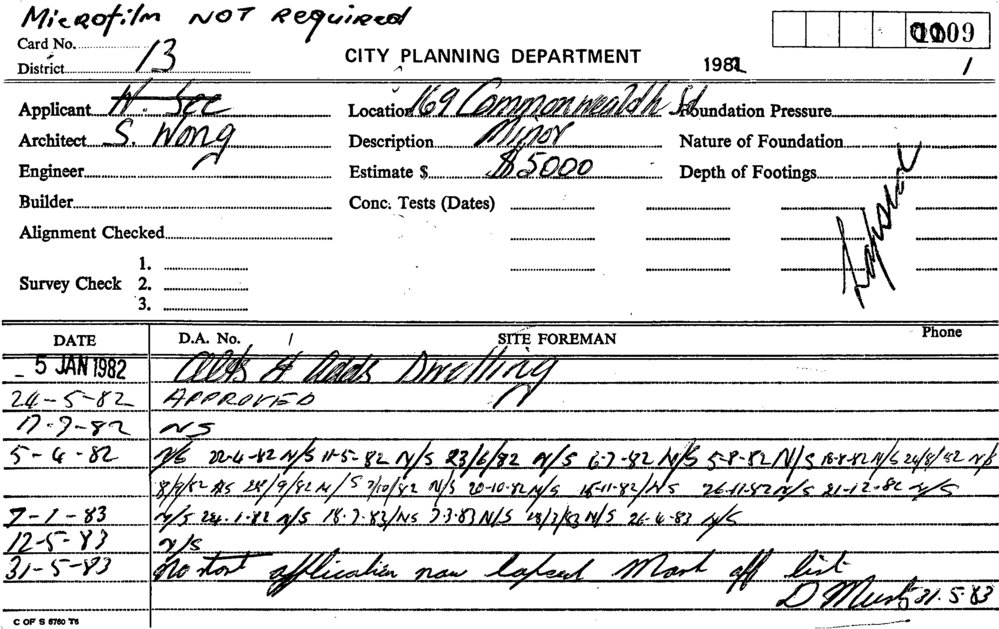 Microfilm NOT Required
Card No.
District 13
CITY PLANNING DEPARTMENT
1982
1
Applicant W. See
Location 169 Commonwealth St
Foundation Pressure
Architect S. Wong
Description Minor
Nature of Foundation
Engineer
Estimate $ $5000
Depth of Footings
Builder
Conc. Tests (Dates)
Lapsed
Alignment Checked
Survey Check
1.
2.
3.
DATE D.A. No. / SITE FOREMAN Phone
5 JAN 1982 Alts & Adds Dwelling
24-5-82 APPROVED
17-3-82 NS
5-4-82 N/S 22-4-82 N/S 11-5-82 N/S 23/6/82 N/S 6-7-82 N/S 5-8-82 N/S 18-8-82 N/S 24/8/82 N/S
8/9/82 NS 28/9/82 N/S 7/10/82 N/S 20-10-82 N/S 15-11-82/NS 26-11-82 N/S 21-12-82 N/S
7-1-83 N/S 24-1-82 N/S 18-2-83/NS 3-3-83 N/S 28/3/83 N/S 26-4-83 N/S
12-5-83 N/S
31-5-83 No start application now lapsed Mark off list
31.5.83
C OF S 5760 T5